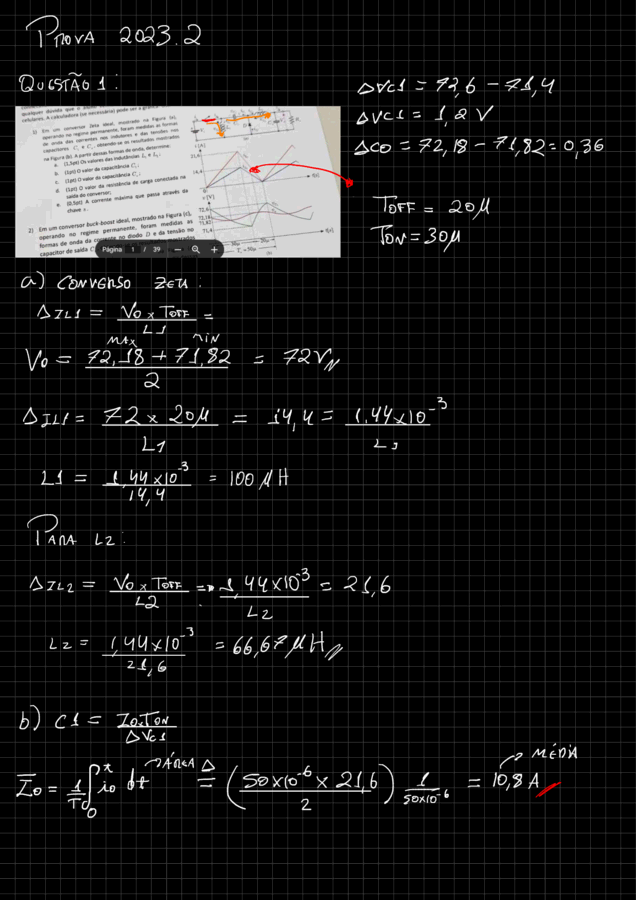 PROVA 2023.2
QUESTÃO 1:
ΔVC1 = 72,6 - 71,4
ΔVC1 = 1,2 V
ΔCO = 72,18 - 71,82 = 0,36
TOFF = 20μ
TON = 30μ
1) Em um conversor Zeta ideal, mostrado na Figura (a),
operando no regime permanente, foram medidas as formas
de onda das correntes nos indutores e das tensões nos
capacitores
na Figura (b). A partir dessas formas de onda, determine:
a. (1,5pt) Os valores das indutâncias L₁ e L₂;
b. (1pt) O valor da capacitância C₁;
c. (1pt) O valor da capacitância
d. (1pt) O valor da resistência de carga conectada na
saída do conversor;
e. (0,5pt) A corrente máxima que passa através da
chave s.
2) Em um conversor buck-boost ideal, mostrado na Figura (c),
operando no regime permanente, foram medidas as
formas de onda da corrente no diodo D e da tensão no
capacitor de saída
i[A]
21,6
14,4
0
t[s]
v[V]
72,6
72,18
71,82
71,4
t[s]
Página 1 / 39
a) CONVERSO ZETA:
ΔIL1 = VO x TOFF / L1 =
MAX MIN
VO = 72,18 + 71,82 / 2 = 72V
ΔIL1 = 72 x 20μ / L1 = 14,4 = 1,44x10⁻³ / L1
L1 = 1,44x10⁻³ / 14,4 = 100 μH
PARA L2:
ΔIL2 = VO x TOFF / L2 => 1,44x10⁻³ / L2 = 21,6
L2 = 1,44x10⁻³ / 21,6 = 66,67 μH
b) C1 = IO.TON / ΔVC1
ÁREA Δ MÉDIA
IO = 1/T ∫₀ᵗ io dt = (50x10⁻⁶ x 21,6 / 2) 1 / 50x10⁻⁶ = 10,8 A